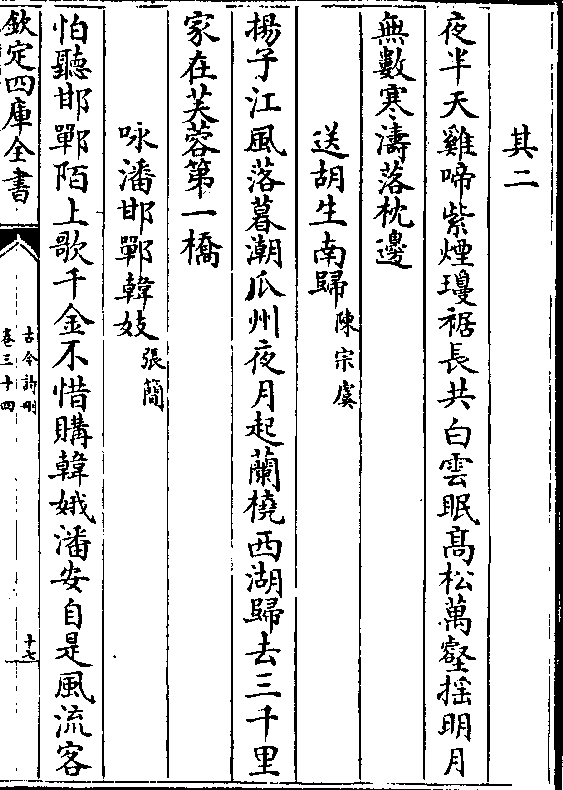 其二
夜半天雞啼紫煙瓊裾長共白雲眠髙松萬壑揺明月
無數寒濤落枕邊
送胡生南歸陳宗虞
揚子江風落暮潮瓜州夜月起蘭橈西湖歸去三千里
家在芙蓉第一橋
咏潘邯鄲韓妓張簡
怕聽邯鄲陌上歌千金不惜購韓娥潘安自是風流客
欽定四庫全書
古今詩刪
卷三十四
十七